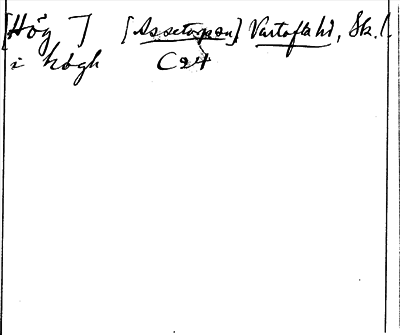 [Hög] [Assetorpson] Vartofta hd, Sk. l.
i högh C24